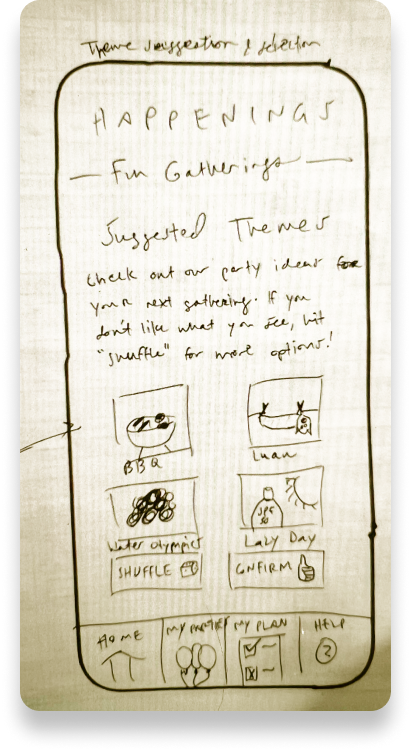 Theme suggestion & selection
HAPPENINGS
— Fun Gatherings —
Suggested Themes
Check out our party ideas for
your next gathering. If you
don't like what you see, hit
"shuffle" for more options!
BBQ
Luau
SPF
50
Water Olympics
Lazy Day
SHUFFLE
CONFIRM
HOME
MY PARTIES
MY PLAN
HELP
?